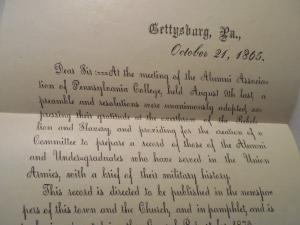 Gettysburg, Pa.,
October 21, 1865.
Dear Sir:—At the meeting of the Alumni Associa-
tion of Pennsylvania College, held August 9th last, a
preamble and resolutions were unanimously adopted, ex-
pressing their gratitude at the overthrow of the Rebel-
lion and Slavery, and providing for the creation of a
Committee to prepare a record of those of the Alumni
and Undergraduates who have served in the Union
Armies, with a brief of their military history.
This record is directed to be published in the newspa-
pers of this town and the Church, and in pamphlet, and is